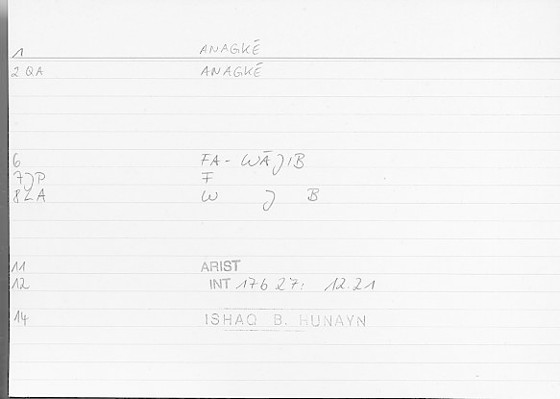 1 ANAGKÉ
2 QA ANAGKÉ
6 FA - WĀJIB
7JP F
8LA W J B
11 ARIST
12 INT 17b 27: 12.21
14 ISHAQ B. HUNAYN